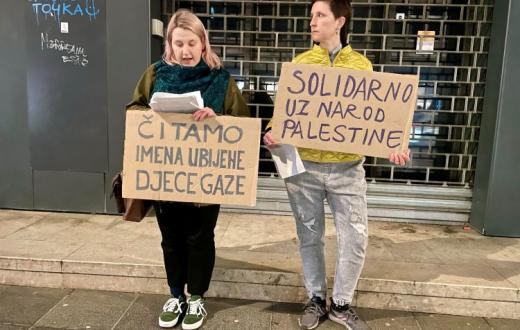 TOЧKA
ČITAMO
IMENA UBIJEHE
DJECE GAZE
SOLIDARNO
UZ NAROD
PALESTINE